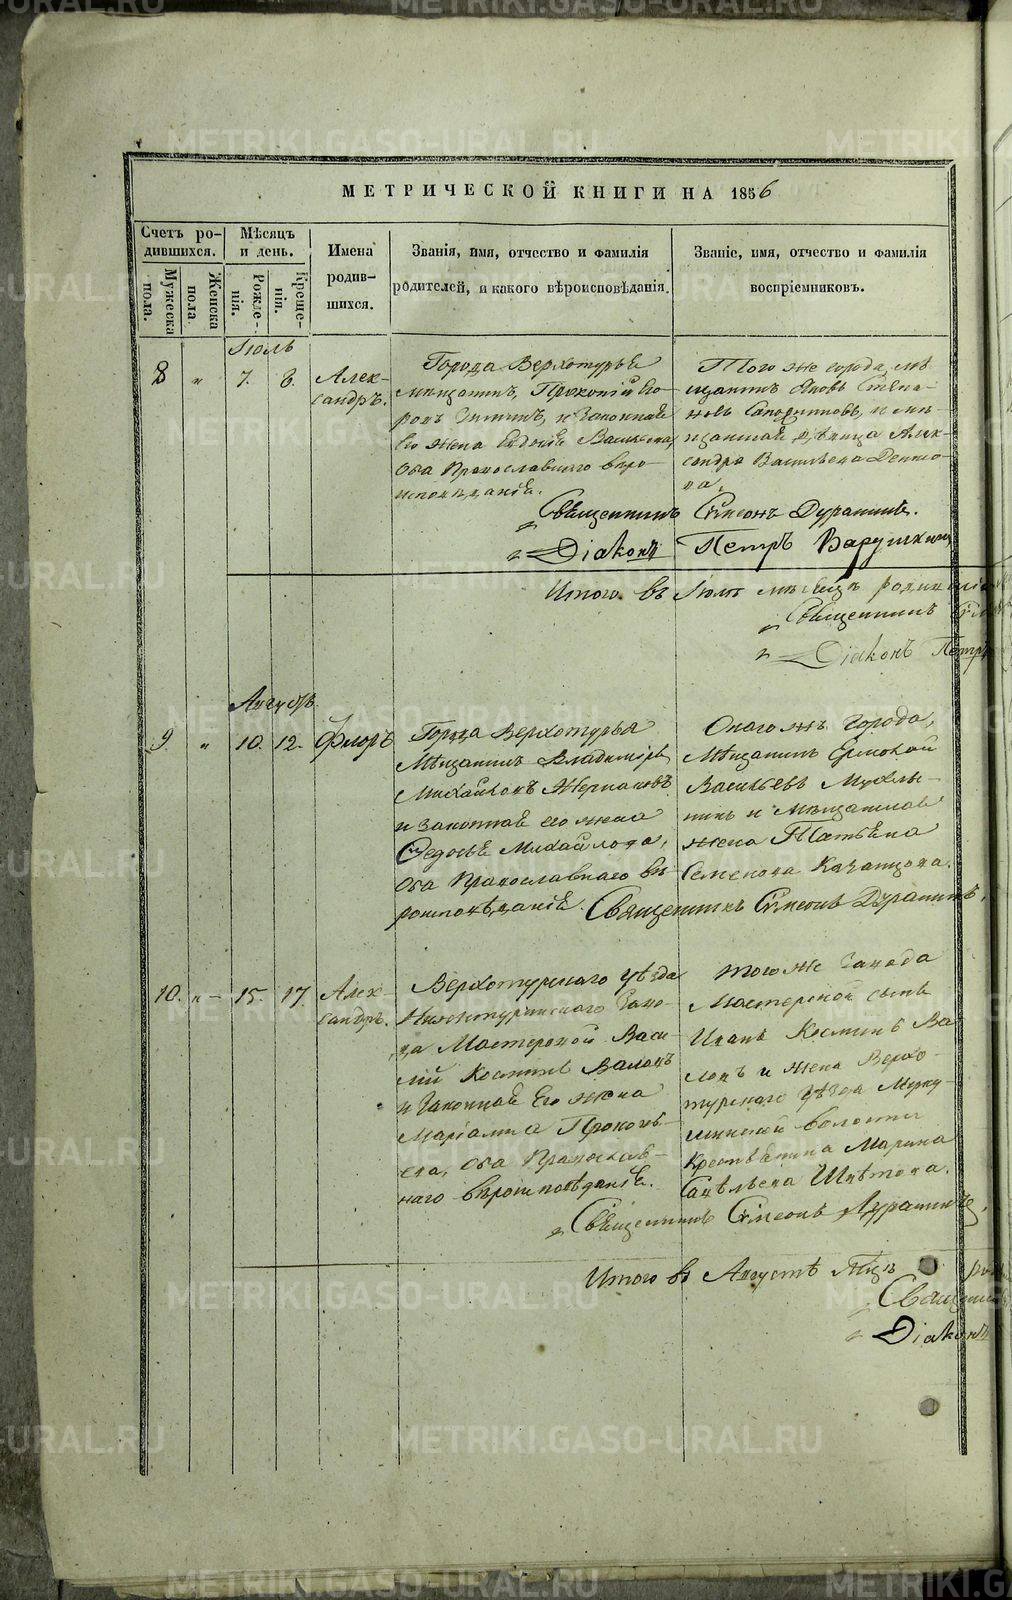 МЕТРИЧЕСКОЙ КНИГИ НА 1856
Счетъ ро-
дившихся.
Мѣсяцъ
и день.
Имена
родив-
шихся.
Званія, имя, отчество и фамилія
родителей, и какого вѣроисповѣданія.
Званіе, имя, отчество и фамилія
воспріемниковъ.
Мужеска
пола.
Женска
пола
Рожде-
нія.
Креще-
нія.
Іюль
8 „ 7. 8. Алек-
сандръ.
Города Верхотурья
мѣщанинъ, Прокопій Его-
ровъ и законная
его жена Евдокія Васильева,
оба Православнаго вѣро-
исповѣданія.
Того же города, мѣ-
щанинъ Яковъ Степа-
новъ Сапожниковъ, и мѣ-
щанская дѣвица Алек-
сандра Васильева
ва.
Священникъ Сѵмеонъ Дурапинъ.
Діаконъ Петръ Варушкинъ
Итого въ Іюлѣ мѣсяцѣ
Священникъ
Діаконъ Петръ
Августъ
9. „ 10. 12. Флоръ
Города Верхотурья
Мѣщанинъ Владиміръ
Михайловъ Жернаковъ
и законная его жена
Ѳедосья Михайлова,
оба Православнаго вѣ-
роисповѣданія.
Онаго жъ города,
Мѣщанинъ
Васильевъ Мухлы-
нинъ и Мѣщанская
жена Татьяна
Семенова Казанцова.
Священникъ Сѵмеонъ Дурапинъ,
10. „ 15. 17. Алек-
сандръ.
Верхотурскаго уѣзда
Нижнетуринскаго Заво-
да Мастеровой Васи-
лій Косминъ Валовъ
и Законная его жена
Маріамна Прокопь-
ева, оба Православ-
наго вѣроисповѣданія.
того же Завода
Мастерской сынъ
Иванъ Косминъ Ва
ловъ и жена Верхо-
турскаго уѣзда
волости
Крестьянина Марина
Савельева
Священникъ Сѵмеонъ Дурапинъ,
Итого въ Августѣ м-цѣ
Священникъ
Діаконъ
METRIKI.GASO-URAL.RU